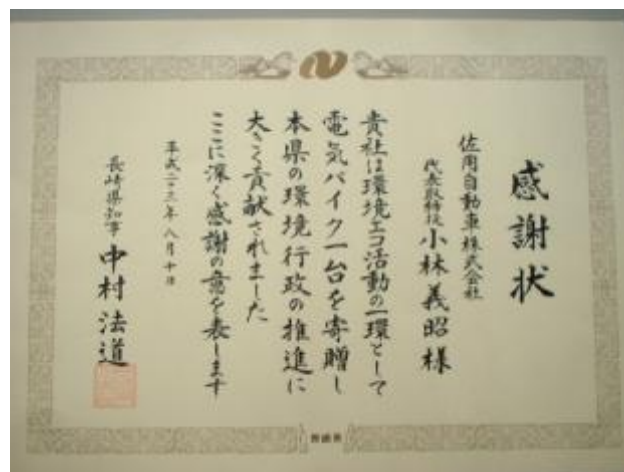 感謝状
佐用自動車株式会社
代表取締役 小林義昭様
貴社は環境エコ活動の一環として
電気バイク一台を寄贈し
本県の環境行政の推進に
大きく貢献されました
ここに深く感謝の意を表します
平成二十三年八月十日
長崎県知事 中村法道
長崎県